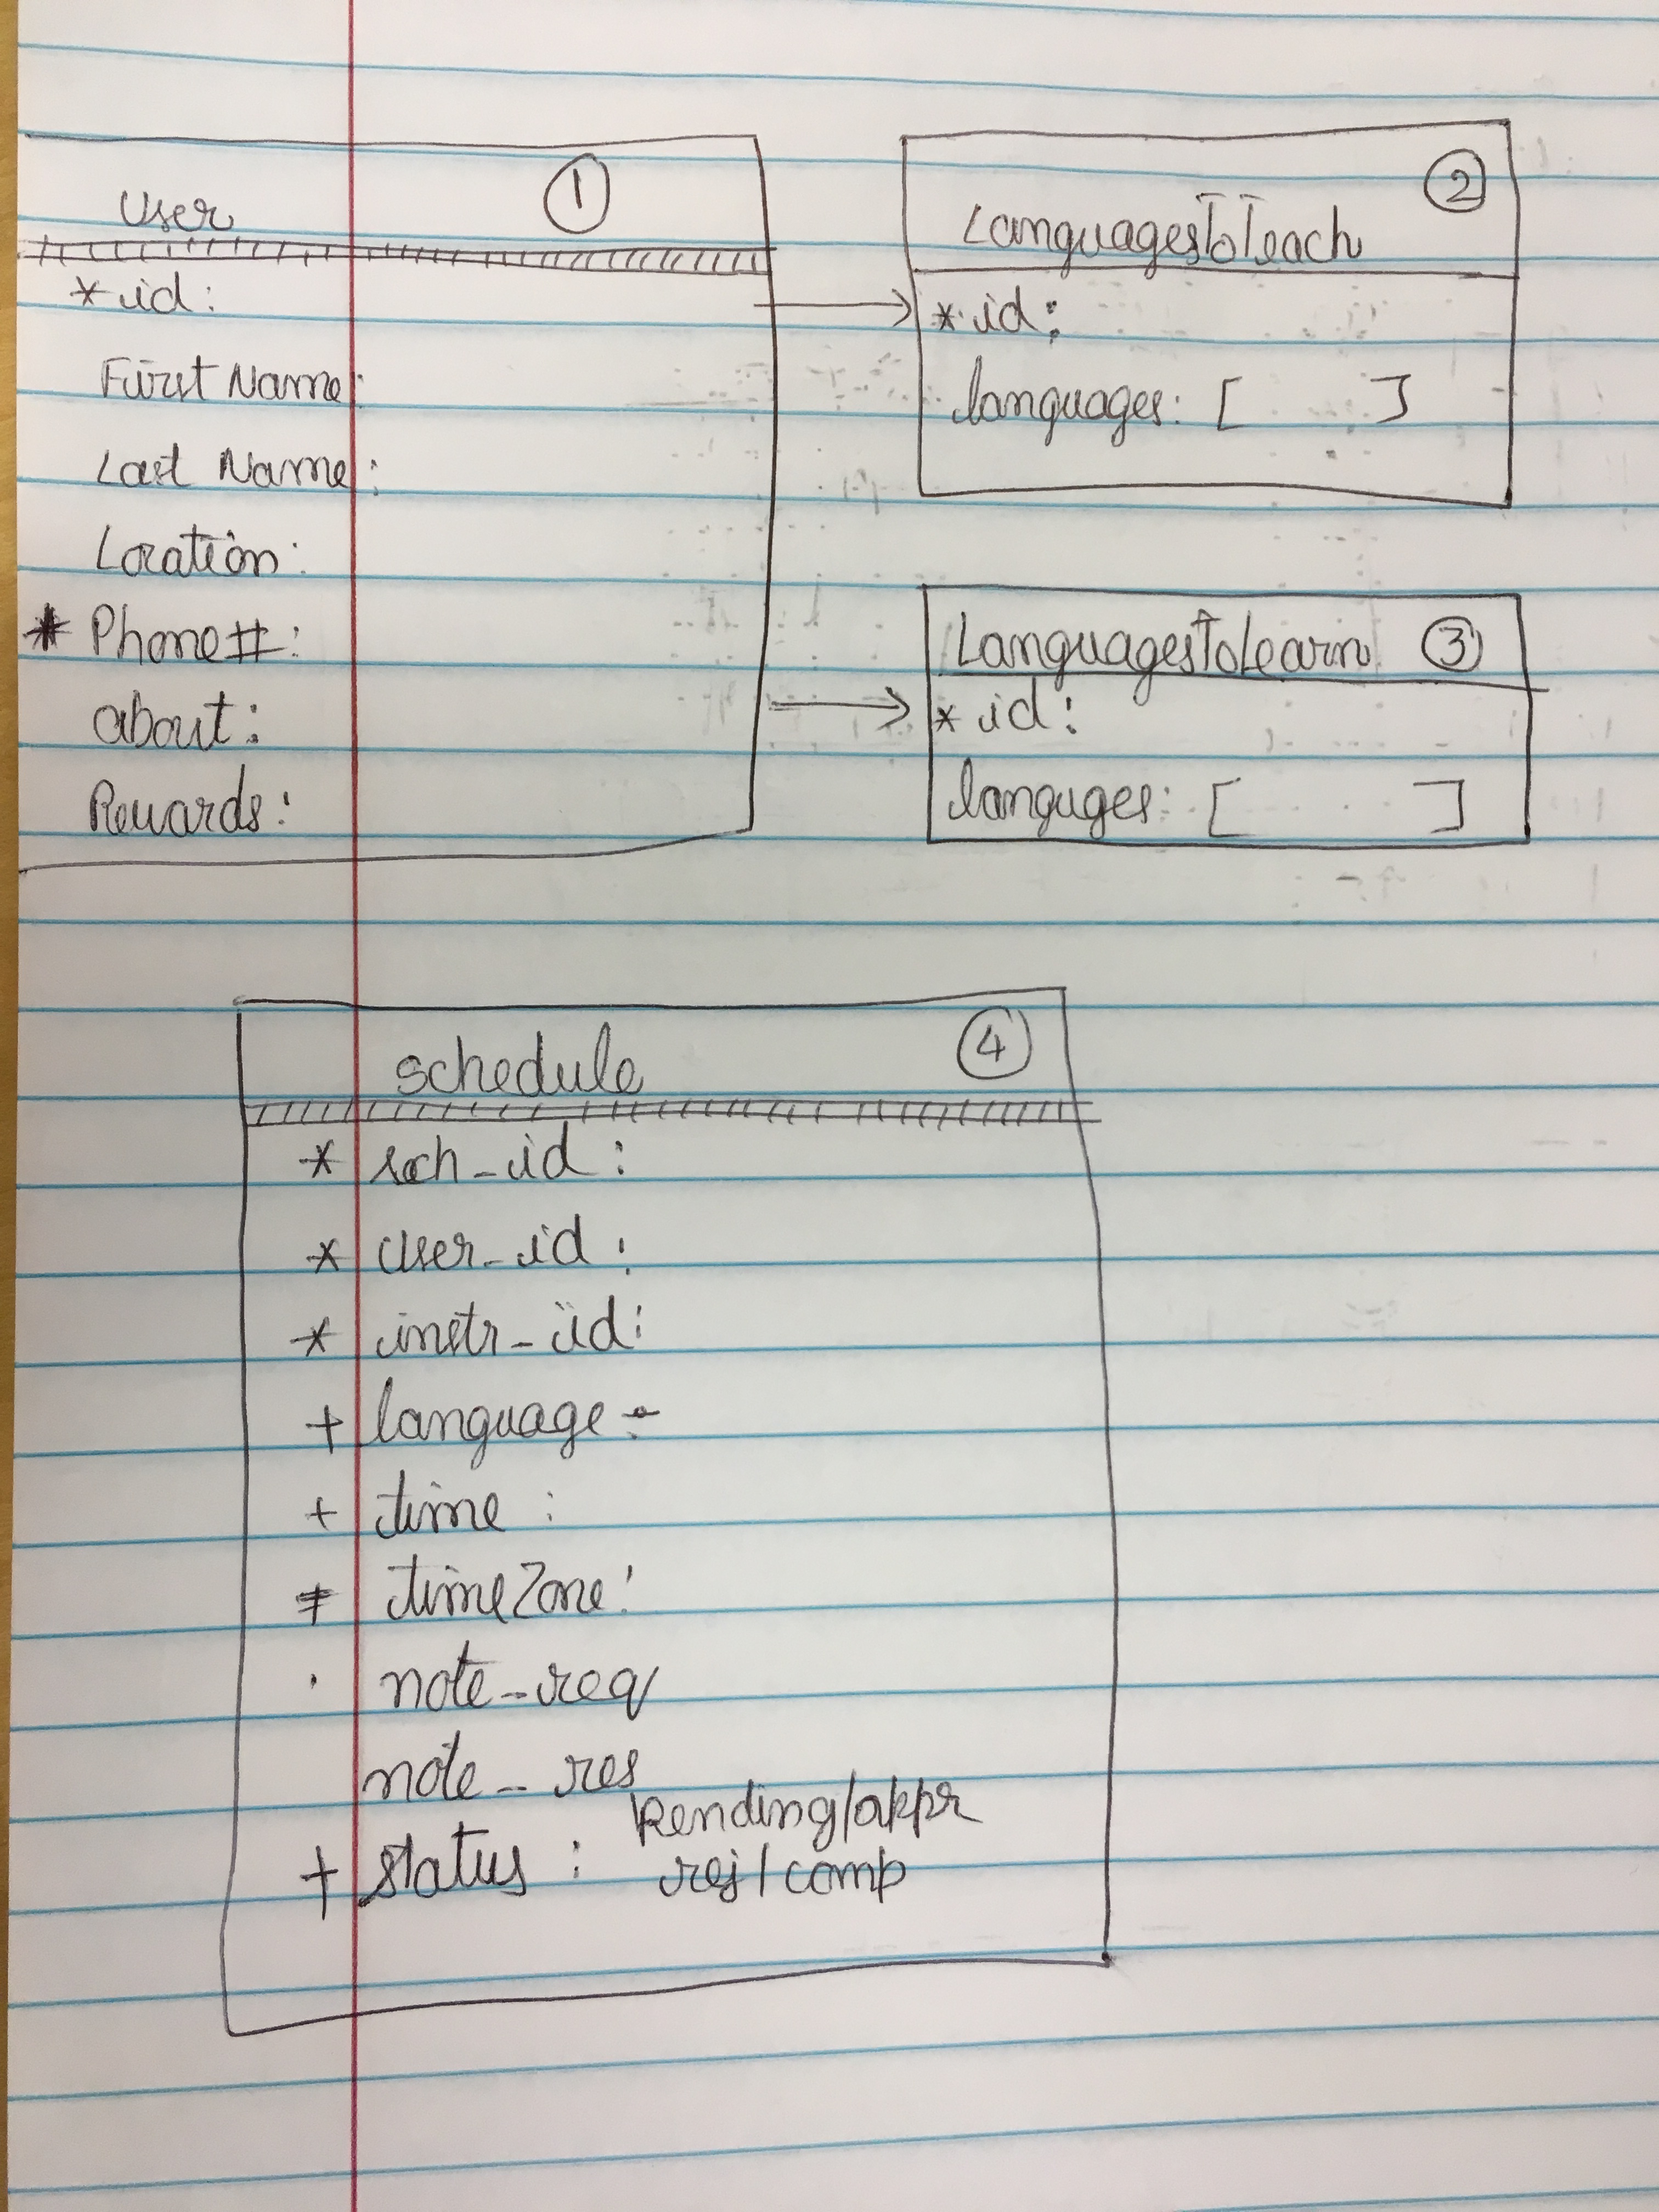 User ①
* id:
First Name:
Last Name:
Location:
* Phone#:
about:
Rewards:
②
LanguagesToTeach
* id:
languages: [ ]
LanguagesToLearn ③
* id:
languges: [ ]
schedule ④
* sch_id:
* user_id:
* instr_id:
+ language:
+ time:
* timeZone:
· note_req
note_res
+ status: Pending/appr
rej/comp